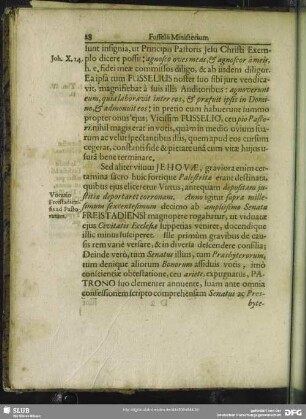 28 Fusselii Ministerium
sunt insignia, ut Principis Pastoris Jesu Christi Exem-
Joh. X, 14. plo dicere possit: agnosco oves meas, & agnoscor à meis,
h. e. fidei meæ commissos diligo, & ab iisdem diligor.
Ea ipsa tum FUSSELIUS noster suo sibi jure vendica-
vit, magnifiebat à suis illis Auditoribus: agnoverunt
eum, qui laboravit inter eos, & præfuit ipsis in Domi-
no, & admonuit eos; in pretio eum habuerunt summo
propter onus ejus. Vicissim FUSSELIO, ceu pio Pasto-
ri, nihil magis erat in votis, quam in medio ovium ita-
rum ac vel inspectantibus illis, quem apud eos cursum
cegerat, constanti fide & pietate unà cum vitæ Jujus u-
surâ bene terminare.
Sed aliter visum JEHOVÆ, graviora enim cer-
tamina sacro huic fortique Palæstritæ erant destinata,
quibus ejus eliceretur Virtus, antequam depositam ju-
stitiæ deportaret coronam. Anno igitur supra mille-
simum sexcentesimum decimo ab amplissimo Senatu
FREISTADIENSI magnopere rogabatur, ut viduatæ
ejus Civitatis Ecclesiæ suppetias veniret, docendique
illic munus susciperet. Ille primùm gravibus de cau-
sis rem variè versare, & in diversa descendere consilia;
Deinde verò, tum Senatus illius, tum Presbyterorum,
tum denique aliorum Bonorum assiduis votis, imò
conscientiæ obtestatione, ceu ariete, expugnatus, PA-
TRONO suo clementer annuente, suam ante omnia
confessionem scripto comprehensam Senatus ac Pres-
byte-
Vocatio
Freistadien-
sis
SLUB
Wir führen Wissen.
DFG